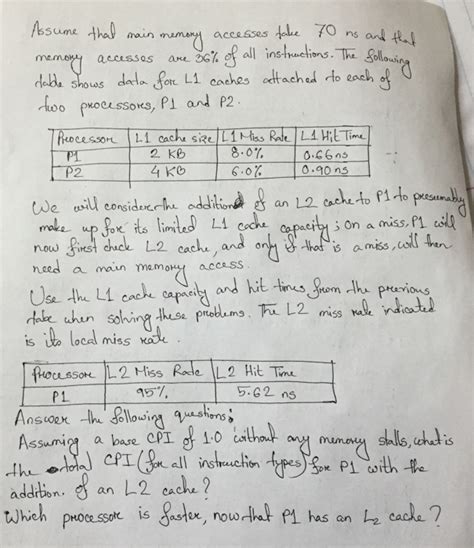 Assume that main memory accesses take 70 ns and that
memory accesses are 36% of all instructions. The following
table shows data for L1 caches attached to each of
two processors, P1 and P2.
Processor L1 cache size L1 Miss Rate L1 Hit Time
P1 2 KB 8.0% 0.66 ns
P2 4 KB 6.0% 0.90 ns
We will consider the addition of an L2 cache to P1 to presumably
make up for its limited L1 cache capacity; On a miss, P1 will
now first check L2 cache, and only if that is a miss, will then
need a main memory access.
Use the L1 cache capacity and hit times from the previous
table when solving these problems. The L2 miss rate indicated
is its local miss rate.
Processor L2 Miss Rate L2 Hit Time
P1 95% 5.62 ns
Answer the following questions:
Assuming a base CPI of 1.0 without any memory stalls, what is
the total CPI (for all instruction types) for P1 with the
addition of an L2 cache?
Which processor is faster, now that P1 has an L2 cache?